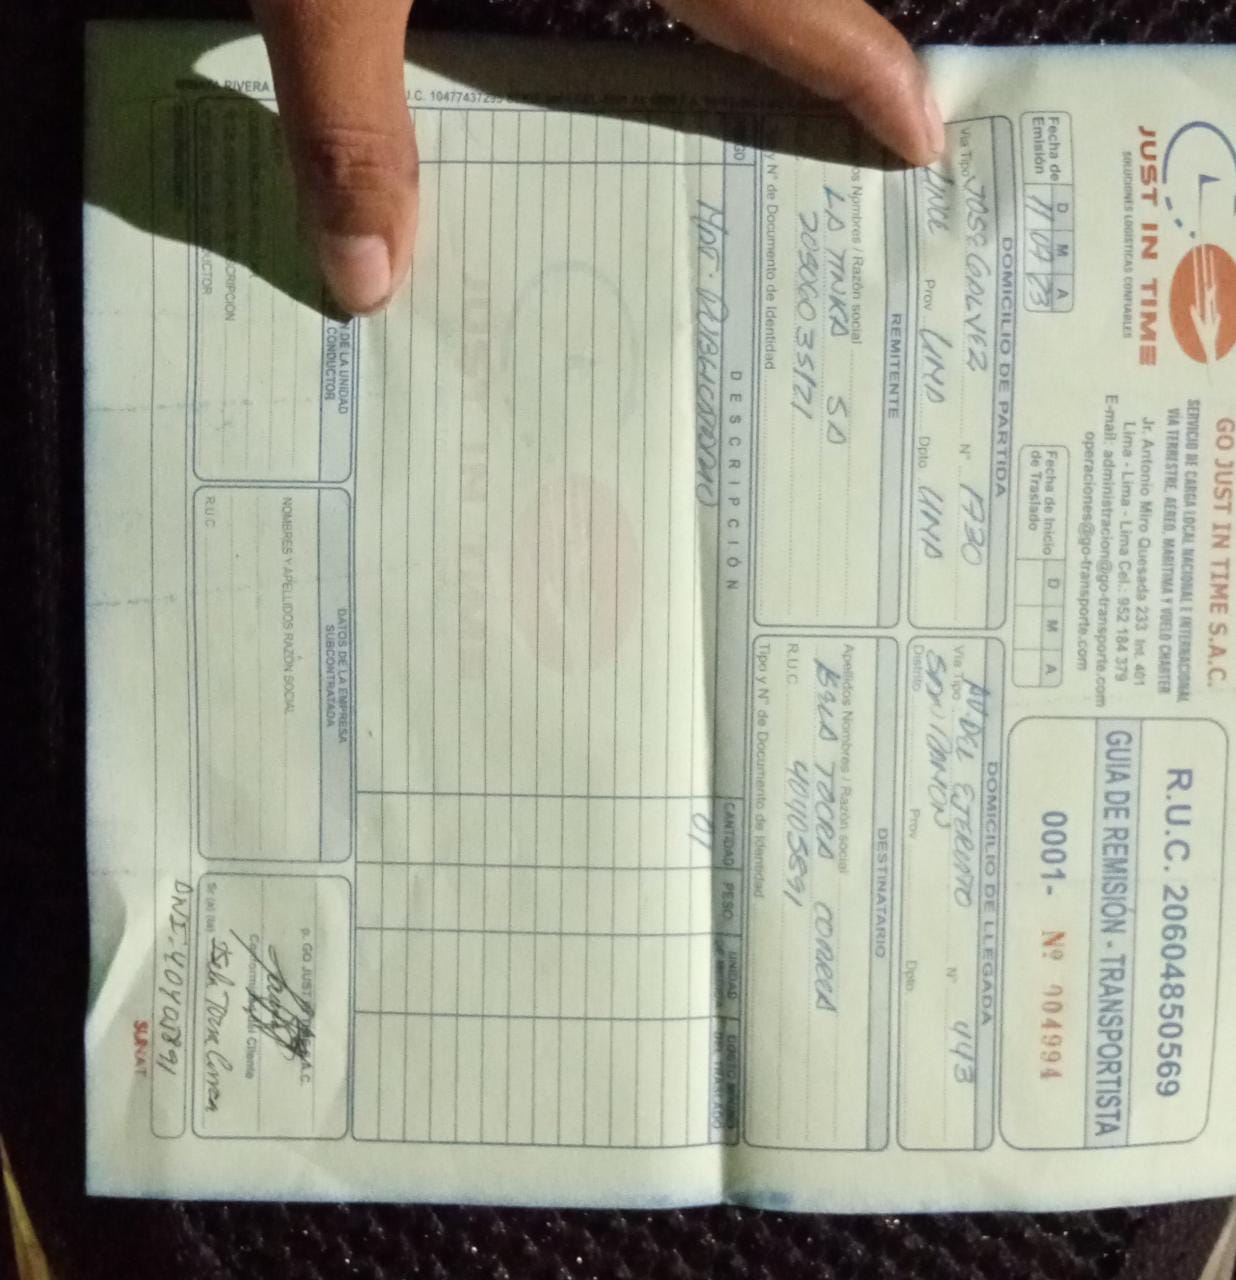 JUST IN TIME
SOLUCIONES LOGÍSTICAS CONFIABLES
GO JUST IN TIME S.A.C.
SERVICIO DE CARGA LOCAL NACIONAL E INTERNACIONAL
VÍA TERRESTRE, AEREO, MARÍTIMA Y VUELO CHARTER
Jr. Antonio Miro Quesada 233 Int. 401
Lima - Lima - Lima Cel.: 952 184 379
E-mail: administracion@go-transporte.com
operaciones@go-transporte.com
R.U.C. 20604850569
GUIA DE REMISIÓN - TRANSPORTISTA
0001- Nº 004994
Fecha de Emisión D M A
11 07 23
Fecha de Inicio de Traslado D M A
DOMICILIO DE PARTIDA
Vía Tipo JOSE GALVEZ N° 1730
LINCE Prov LIMA Dpto LIMA
DOMICILIO DE LLEGADA
Vía Tipo AV DEL EJERCITO N° 443
SAN RAMON
Distrito Prov Dpto
REMITENTE
os Nombres / Razón social
LA TINKA SA
20506035121
y N° de Documento de Identidad
DESTINATARIO
Apellidos Nombres / Razón social
ISELA TOCRA CORREA
R.U.C. 40405891
Tipo y N° de Documento de Identidad
GO DESCRIPCIÓN CANTIDAD PESO UNIDAD DE MEDIDA COSTO MINIMO DEL TRASLADO
MAT. PUBLICITARIO 01
JUST IN TIME
U.C. 10477437299
RIVERA
N DE LA UNIDAD
CONDUCTOR
SCRIPCION
DUCTOR
DATOS DE LA EMPRESA
SUBCONTRATADA
NOMBRES Y APELLIDOS RAZÓN SOCIAL
R.U.C
p. GO JUST IN TIME S.A.C.
Conformidad del Cliente
Sr (a) (ta) Isela Tocra Correa
DNI: 40405891
SUNAT